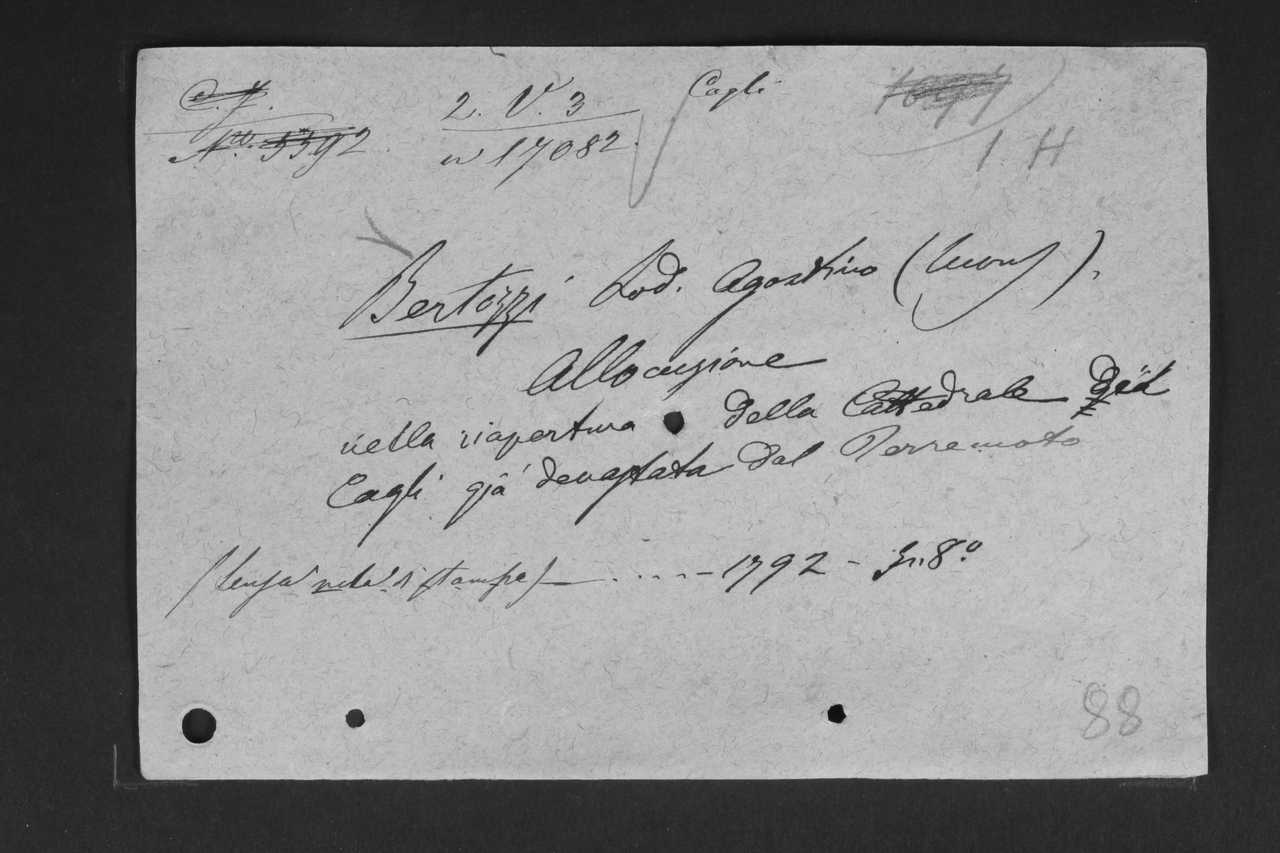 C. J.
No. 5392
2. V. 3
n 17082.
Cagli
1 H
Bertozzi Lod. Agostino (Mons).
Allocuzione
nella riapertura della Cattedrale di
Cagli già devastata dal Terremoto
(Senza nota di stampa) — . . . . . – 1792 – In. 8.º
88